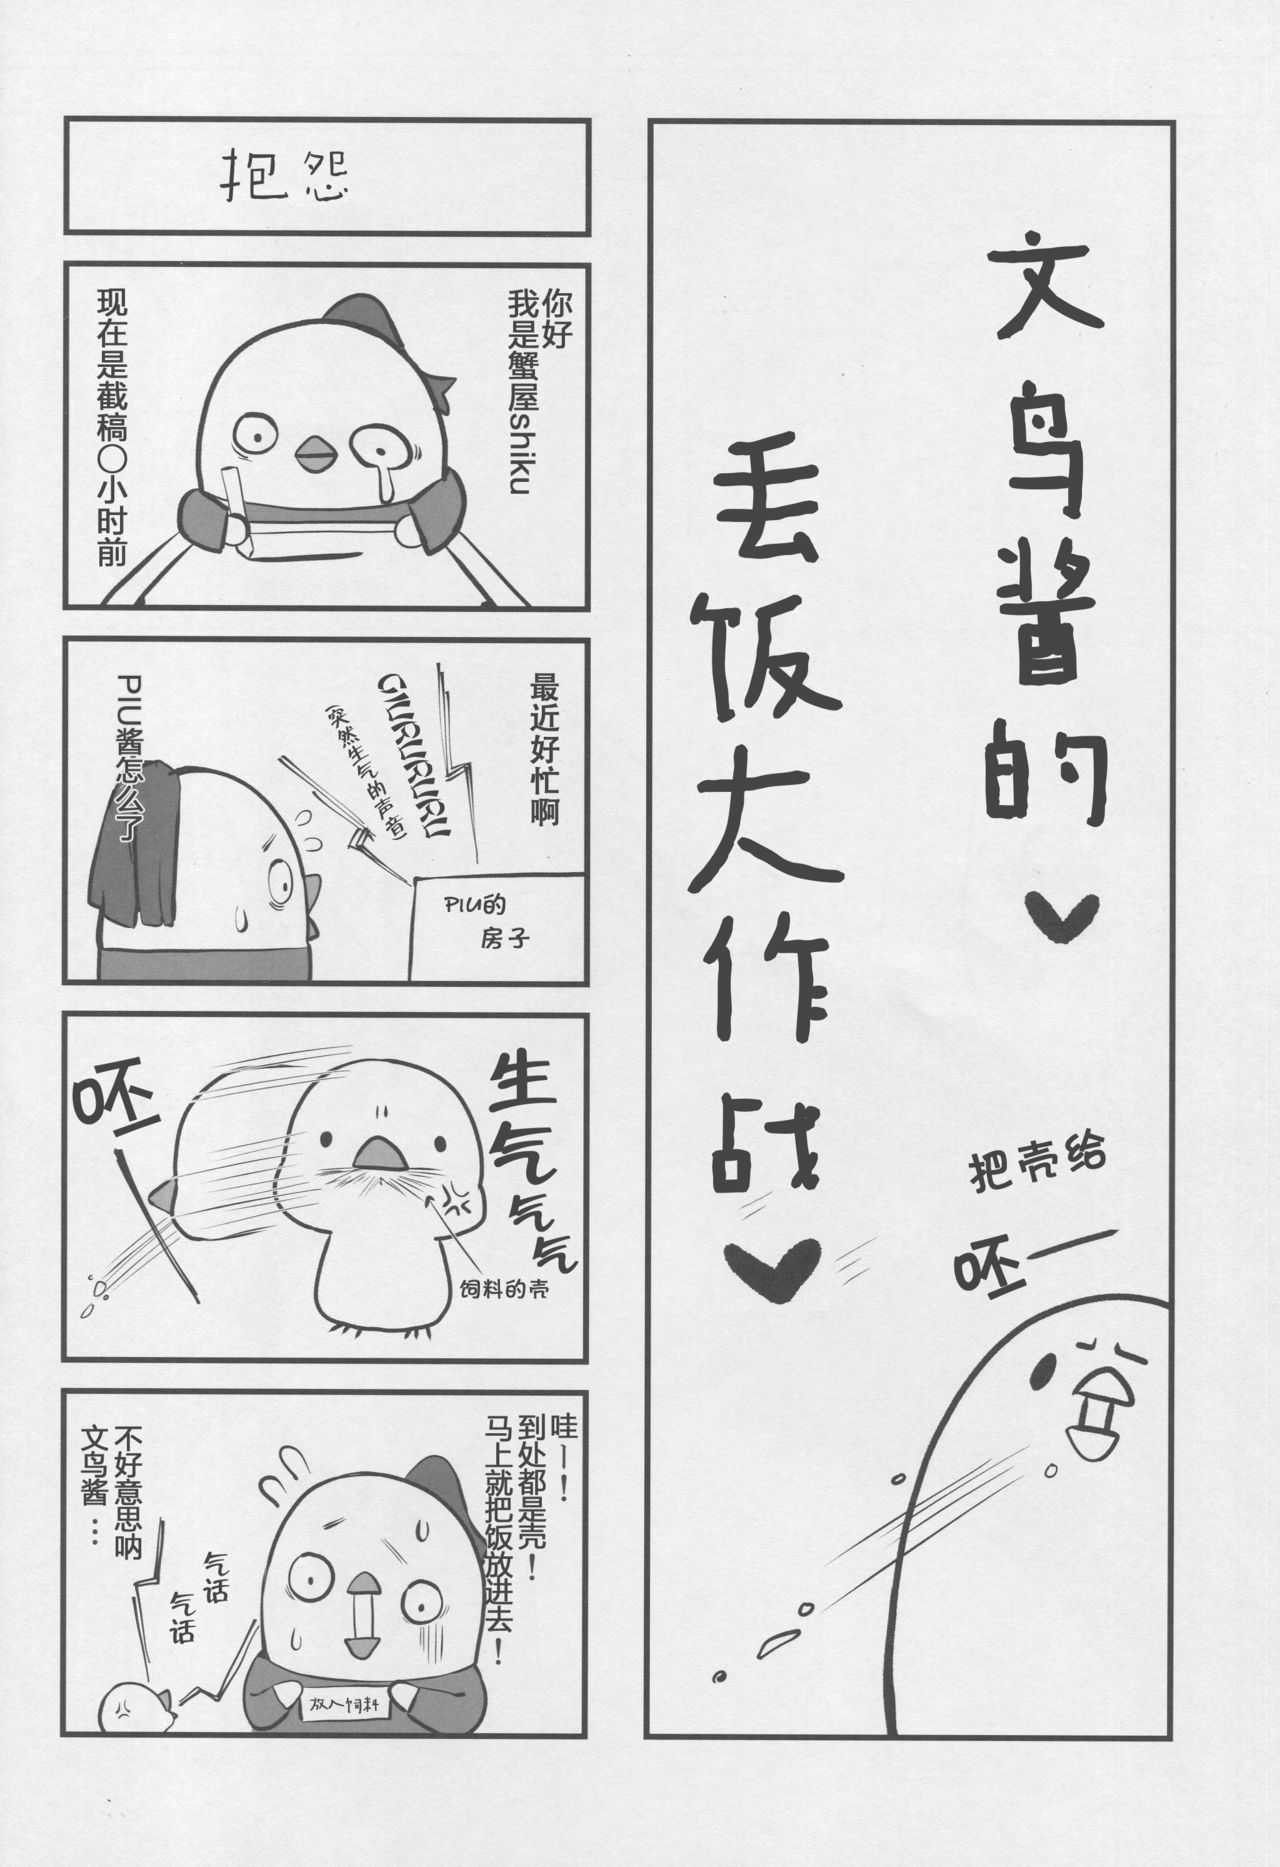 文鸟酱的♥
丢饭大作战♥
把壳给
呸一
抱怨
你好
我是蟹屋shiku
现在是截稿〇小时前
最近好忙啊
GIURURURU
(突然生气的声音)
PIU的
房子
PIU酱怎么了
生气气气
饲料的壳
呸一
哇ー！
到处都是壳！
马上就把饭放进去！
放入饲料
气话
气话
不好意思呐
文鸟酱…